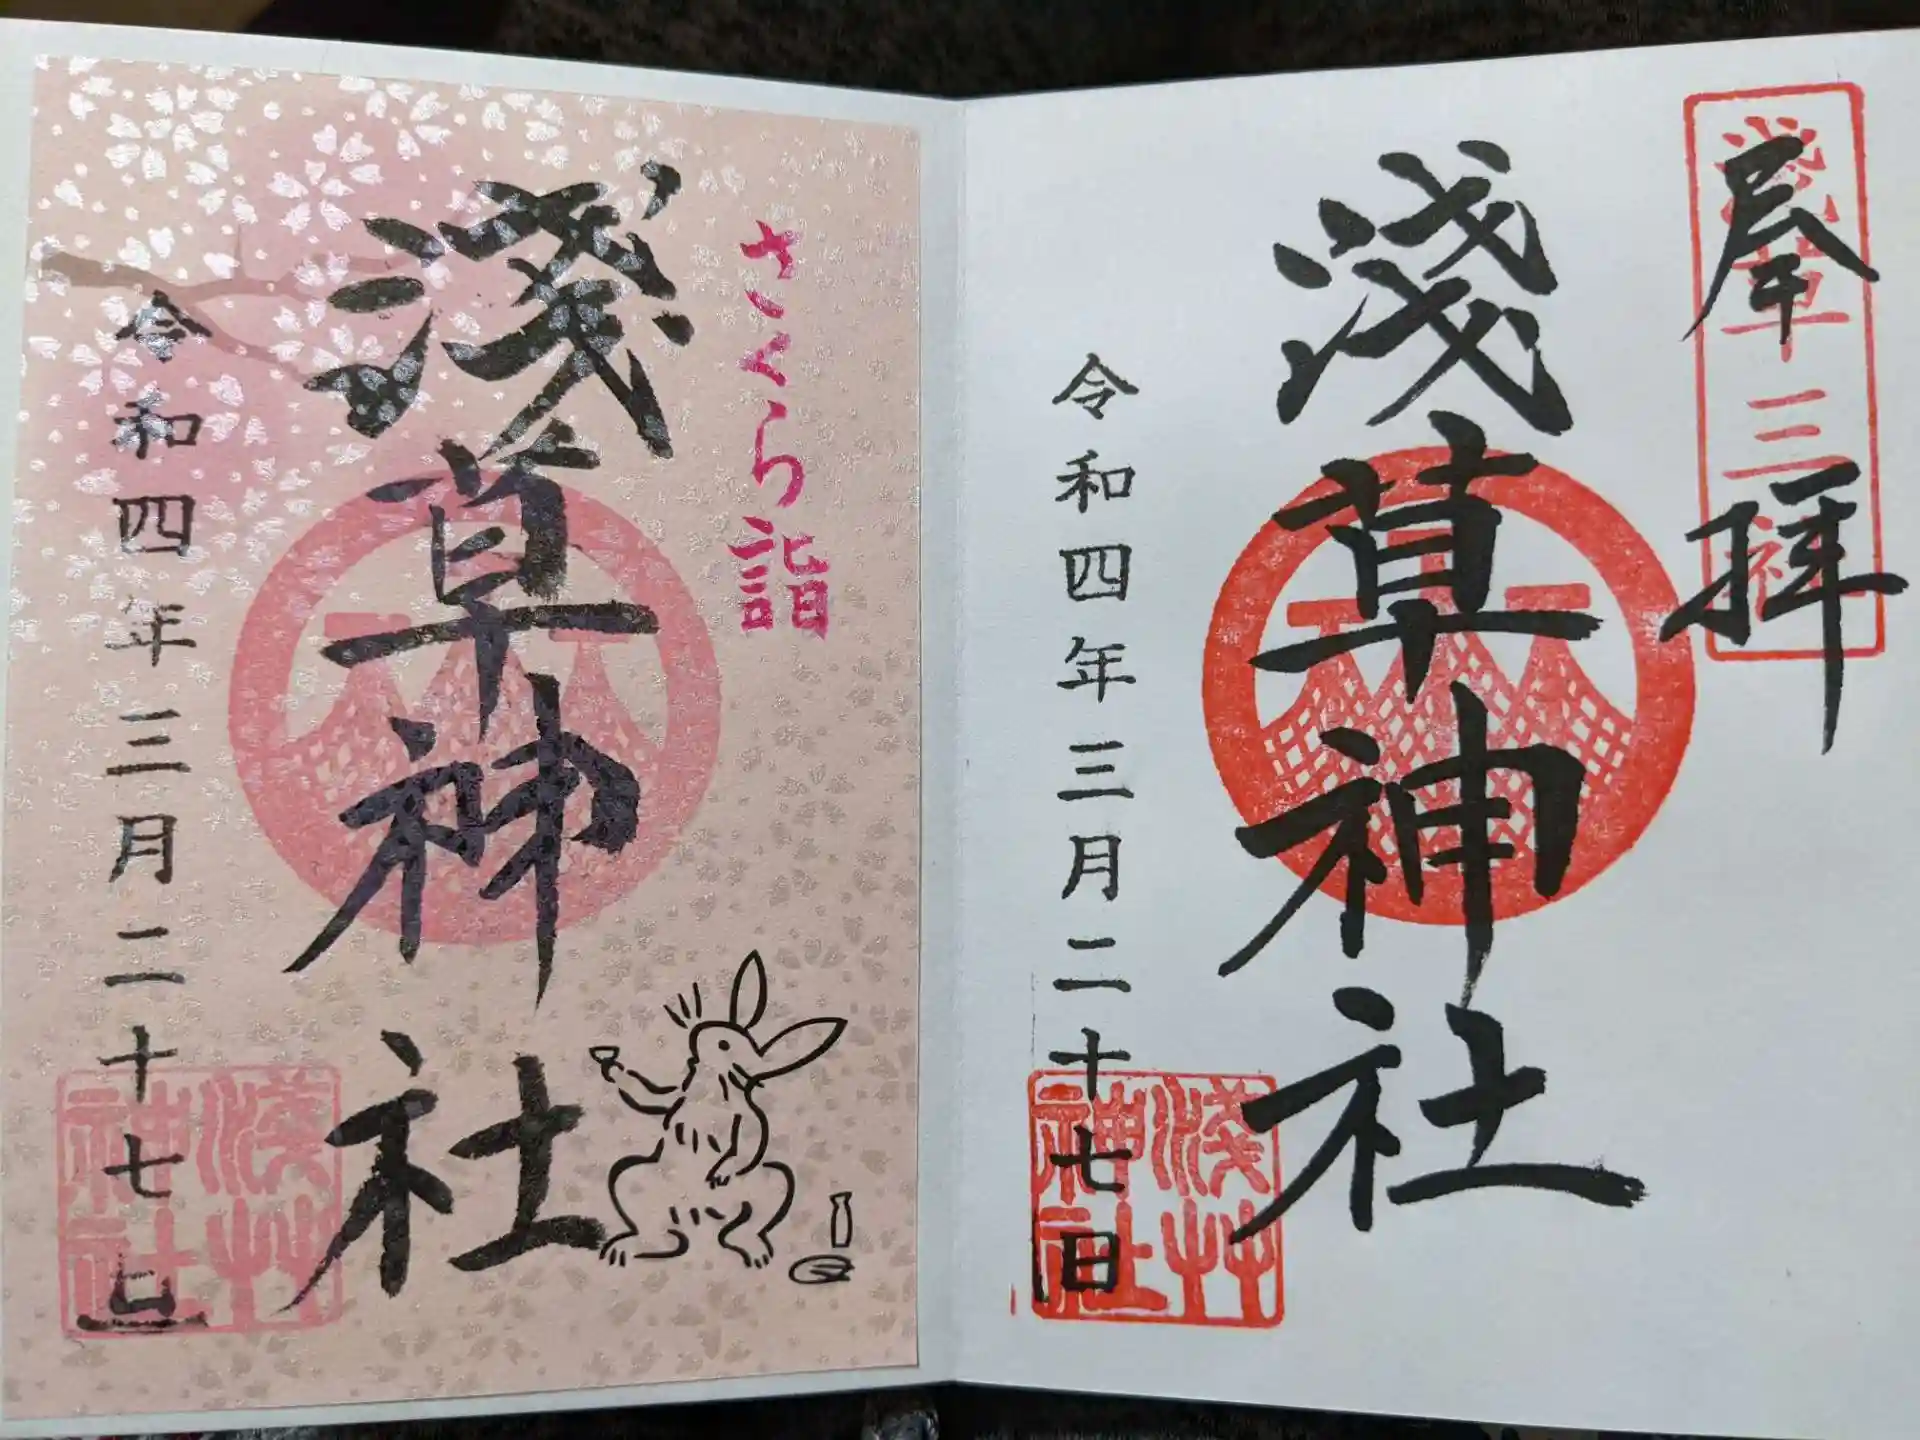 奉拝
浅草三社
淺草神社
令和四年三月二十七日
淺艸
神社
さくら詣
淺草神社
令和四年三月二十七日
淺艸
神社